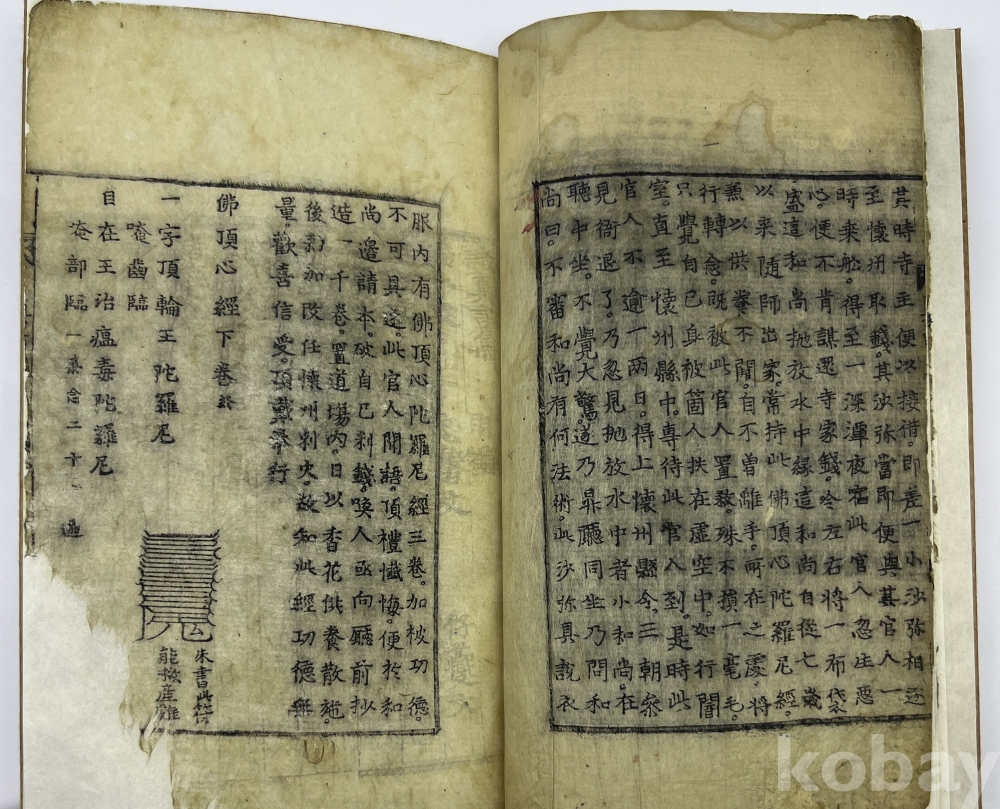 其時寺主便以接借。即差一小沙弥相逐
至懷州取錢。其沙弥當即便與其官人一
時乗舩。得至一深潭夜宿此官人忽生悪
心。便不肯謀還寺家錢。令左右將一布袋
盛這和尚抛放水中緣這和尚自從七歲
以来随師出家。常持此佛頂心陀羅尼經。
兼以供養不闕。自不曾離手。所在之處。將
行轉念。既被此官人置殺。殊不損一毫毛。
只覺自己身被箇人扶在虚空中。如行闇
室。直至懷州縣中。專待此官人到。是時此
官人不逾一兩日。得上懷州縣令。三朝叅
見衙退了。乃忽見抛放水中者小和尚。在
聽中坐。不覺大驚。遂乃昇廳同坐乃問和
尚曰。不審和尚有何法術。此沙弥具說衣
服内有佛頂心陀羅尼經三卷。加被功德。
不可具述。此官人聞語。頂禮懺悔。便於和
尚邊請本。破自己剥錢。喚人亟向廳前抄
造一千卷。置道場内。日以香花供養散施。
後勑加改任懷州刺史。故知此經功德無
量。歡喜信受。頂戴奉行
佛頂心經下卷終
一字頂輪王陀羅尼
唵齒臨
自在王治瘟毒陀羅尼
唵部臨一氣念二十 遍
朱書此符
能救産難
kobay